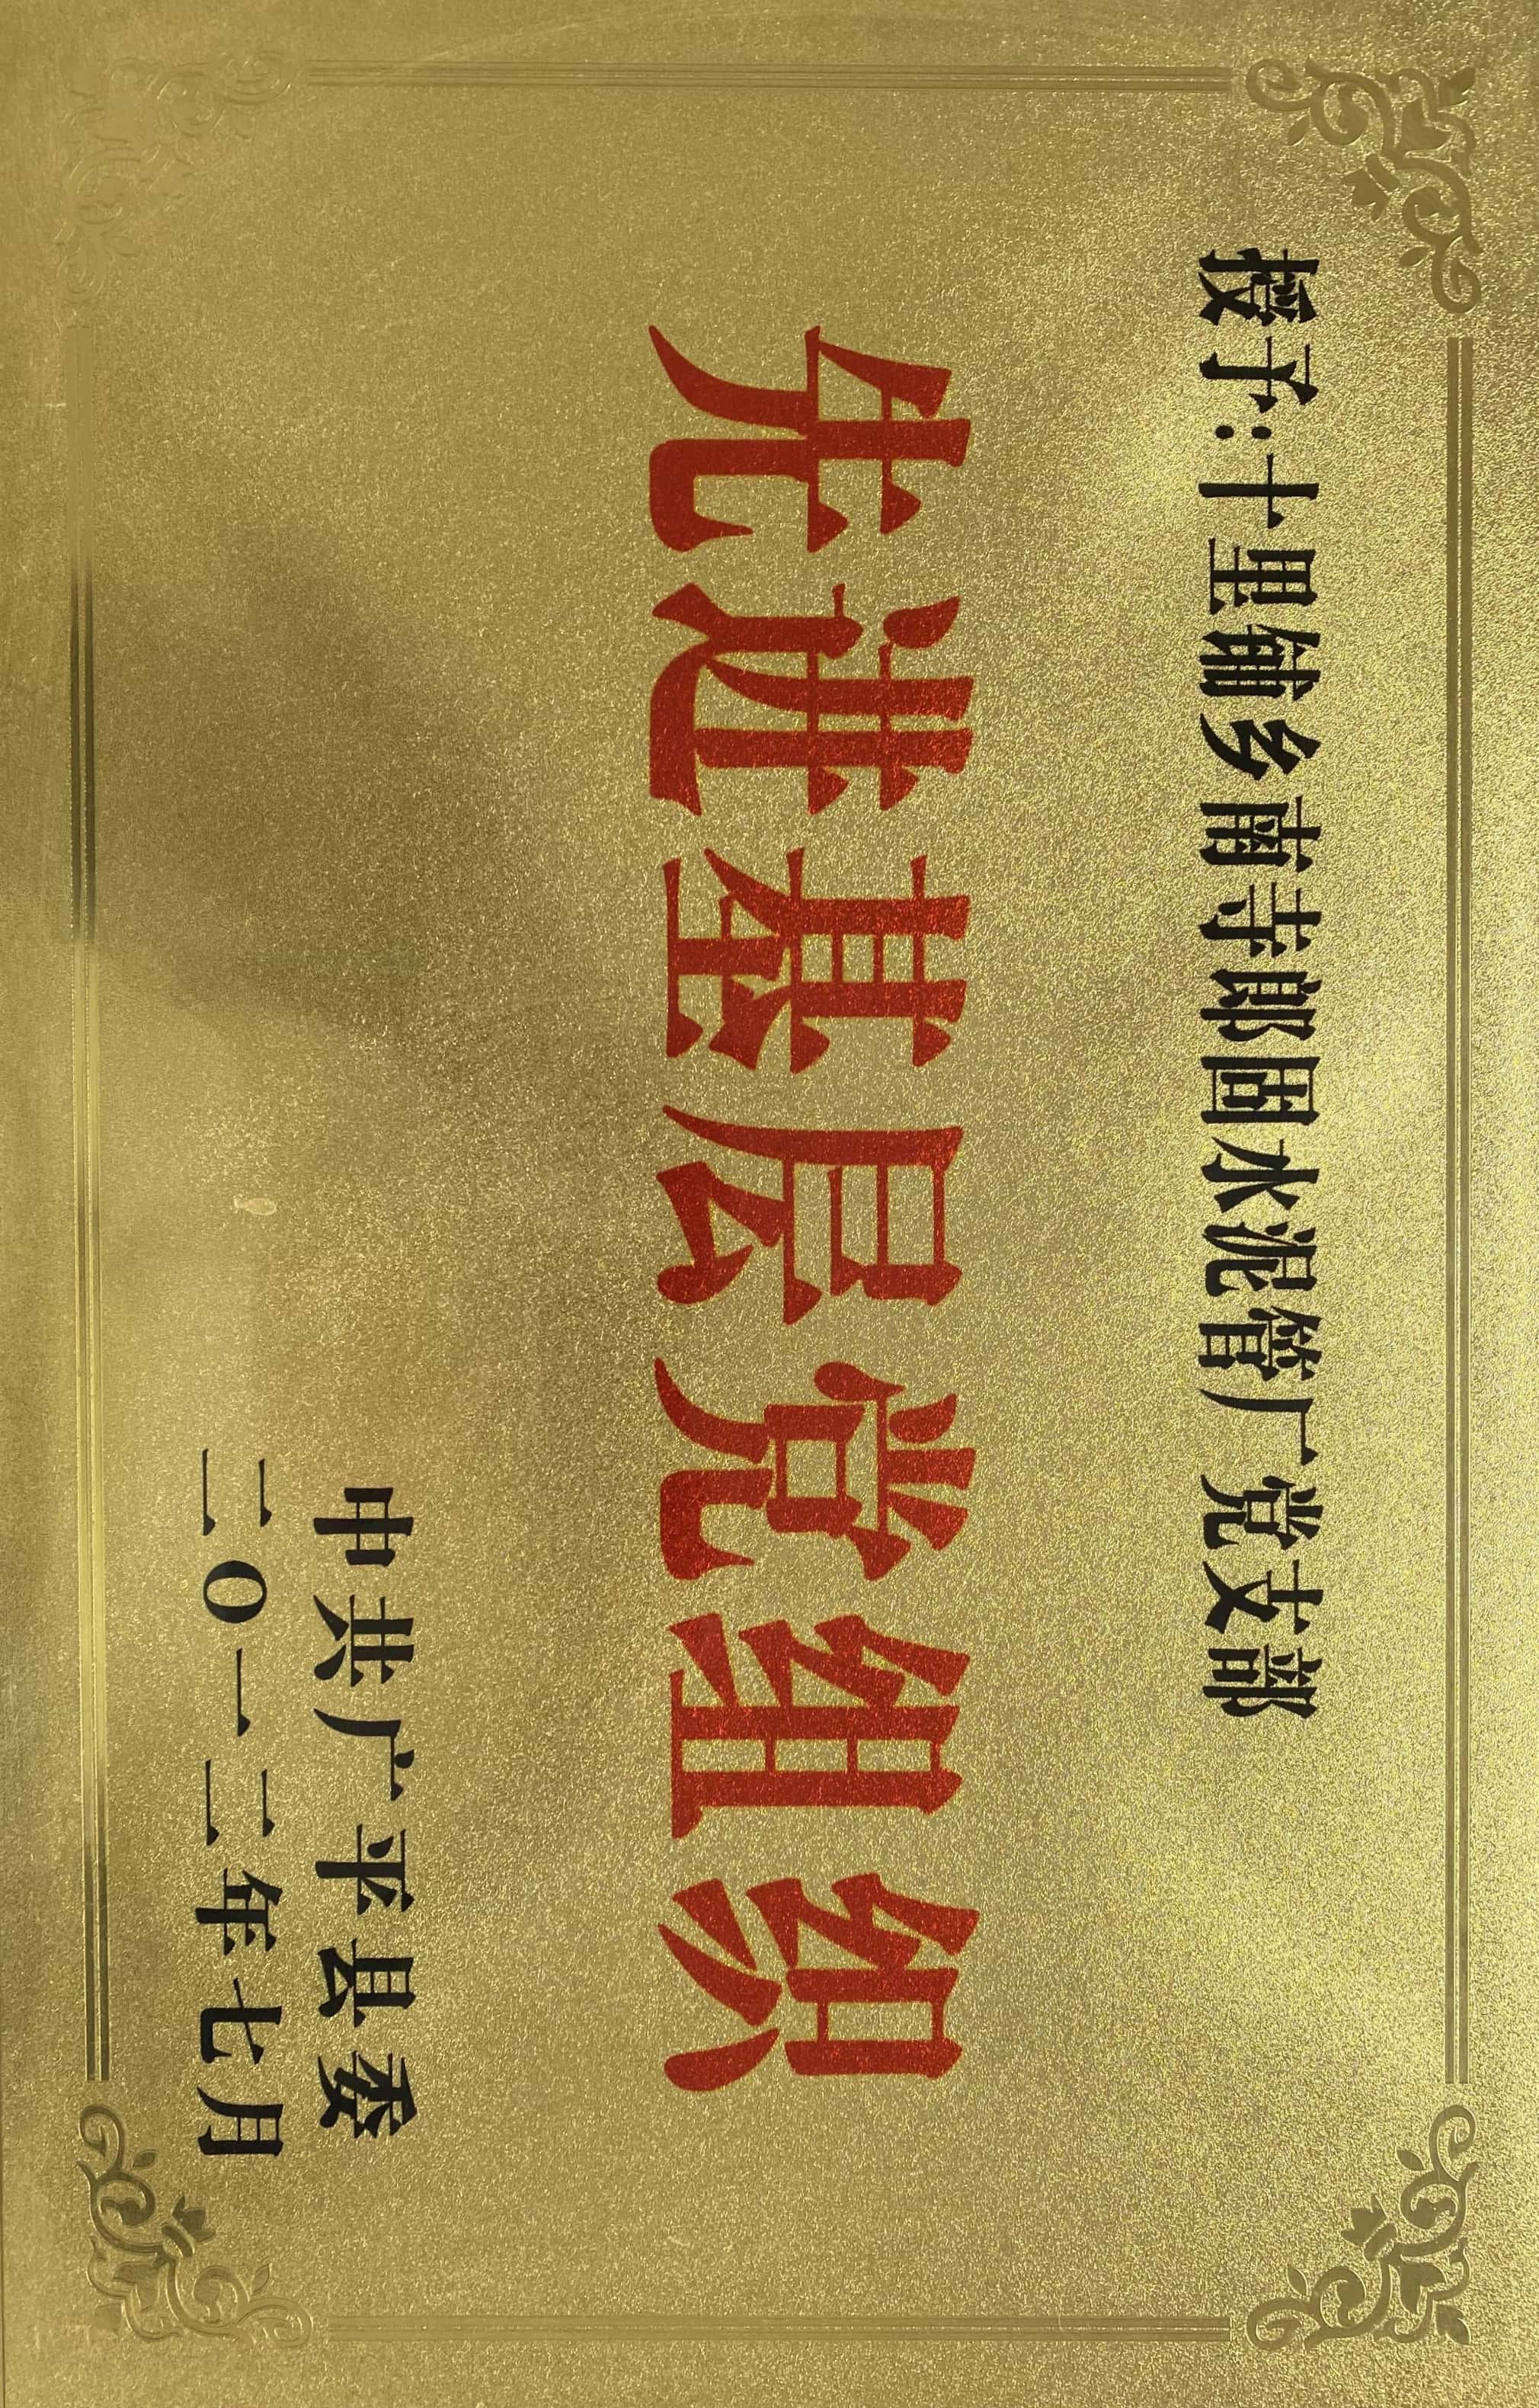 授予：十里铺乡南寺郎固水泥管厂党支部
先进基层党组织
中共广平县委
二0一二年七月